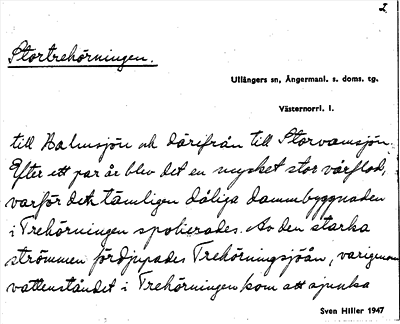 2.
Stortrehörningen.
Ullångers sn, Ångermanl. s. doms. tg.
Västernorrl. l.
till Balmsjön och därifrån till Storvamsjön.
Efter ett par år blev det en mycket stor vårflod,
varför den tämligen dåliga dammbyggnaden
i Trehörningen spolierades. Av den starka
strömmen fördjupades Trehörningsjöån, varigenom
vattenståndet i Trehörningen kom att sjunka
Sven Hiller 1947